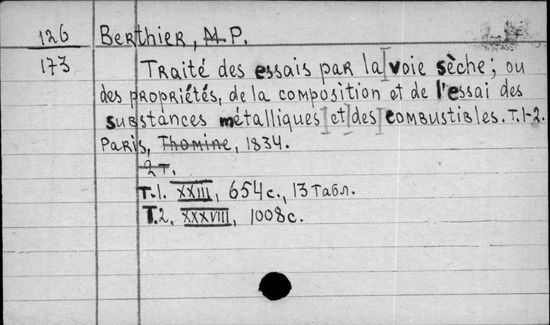 126 Berthier, M. P.
173 Traité des essais par la voie sèche; ou
des propriétés, de la composition et de l'essai des
substances métalliques et des combustibles. T.1-2.
Paris, Thomine, 1834.
2 т.
Т.1. XXIII, 654 с., 13 табл.
Т.2. XXXVIII, 1008 с.